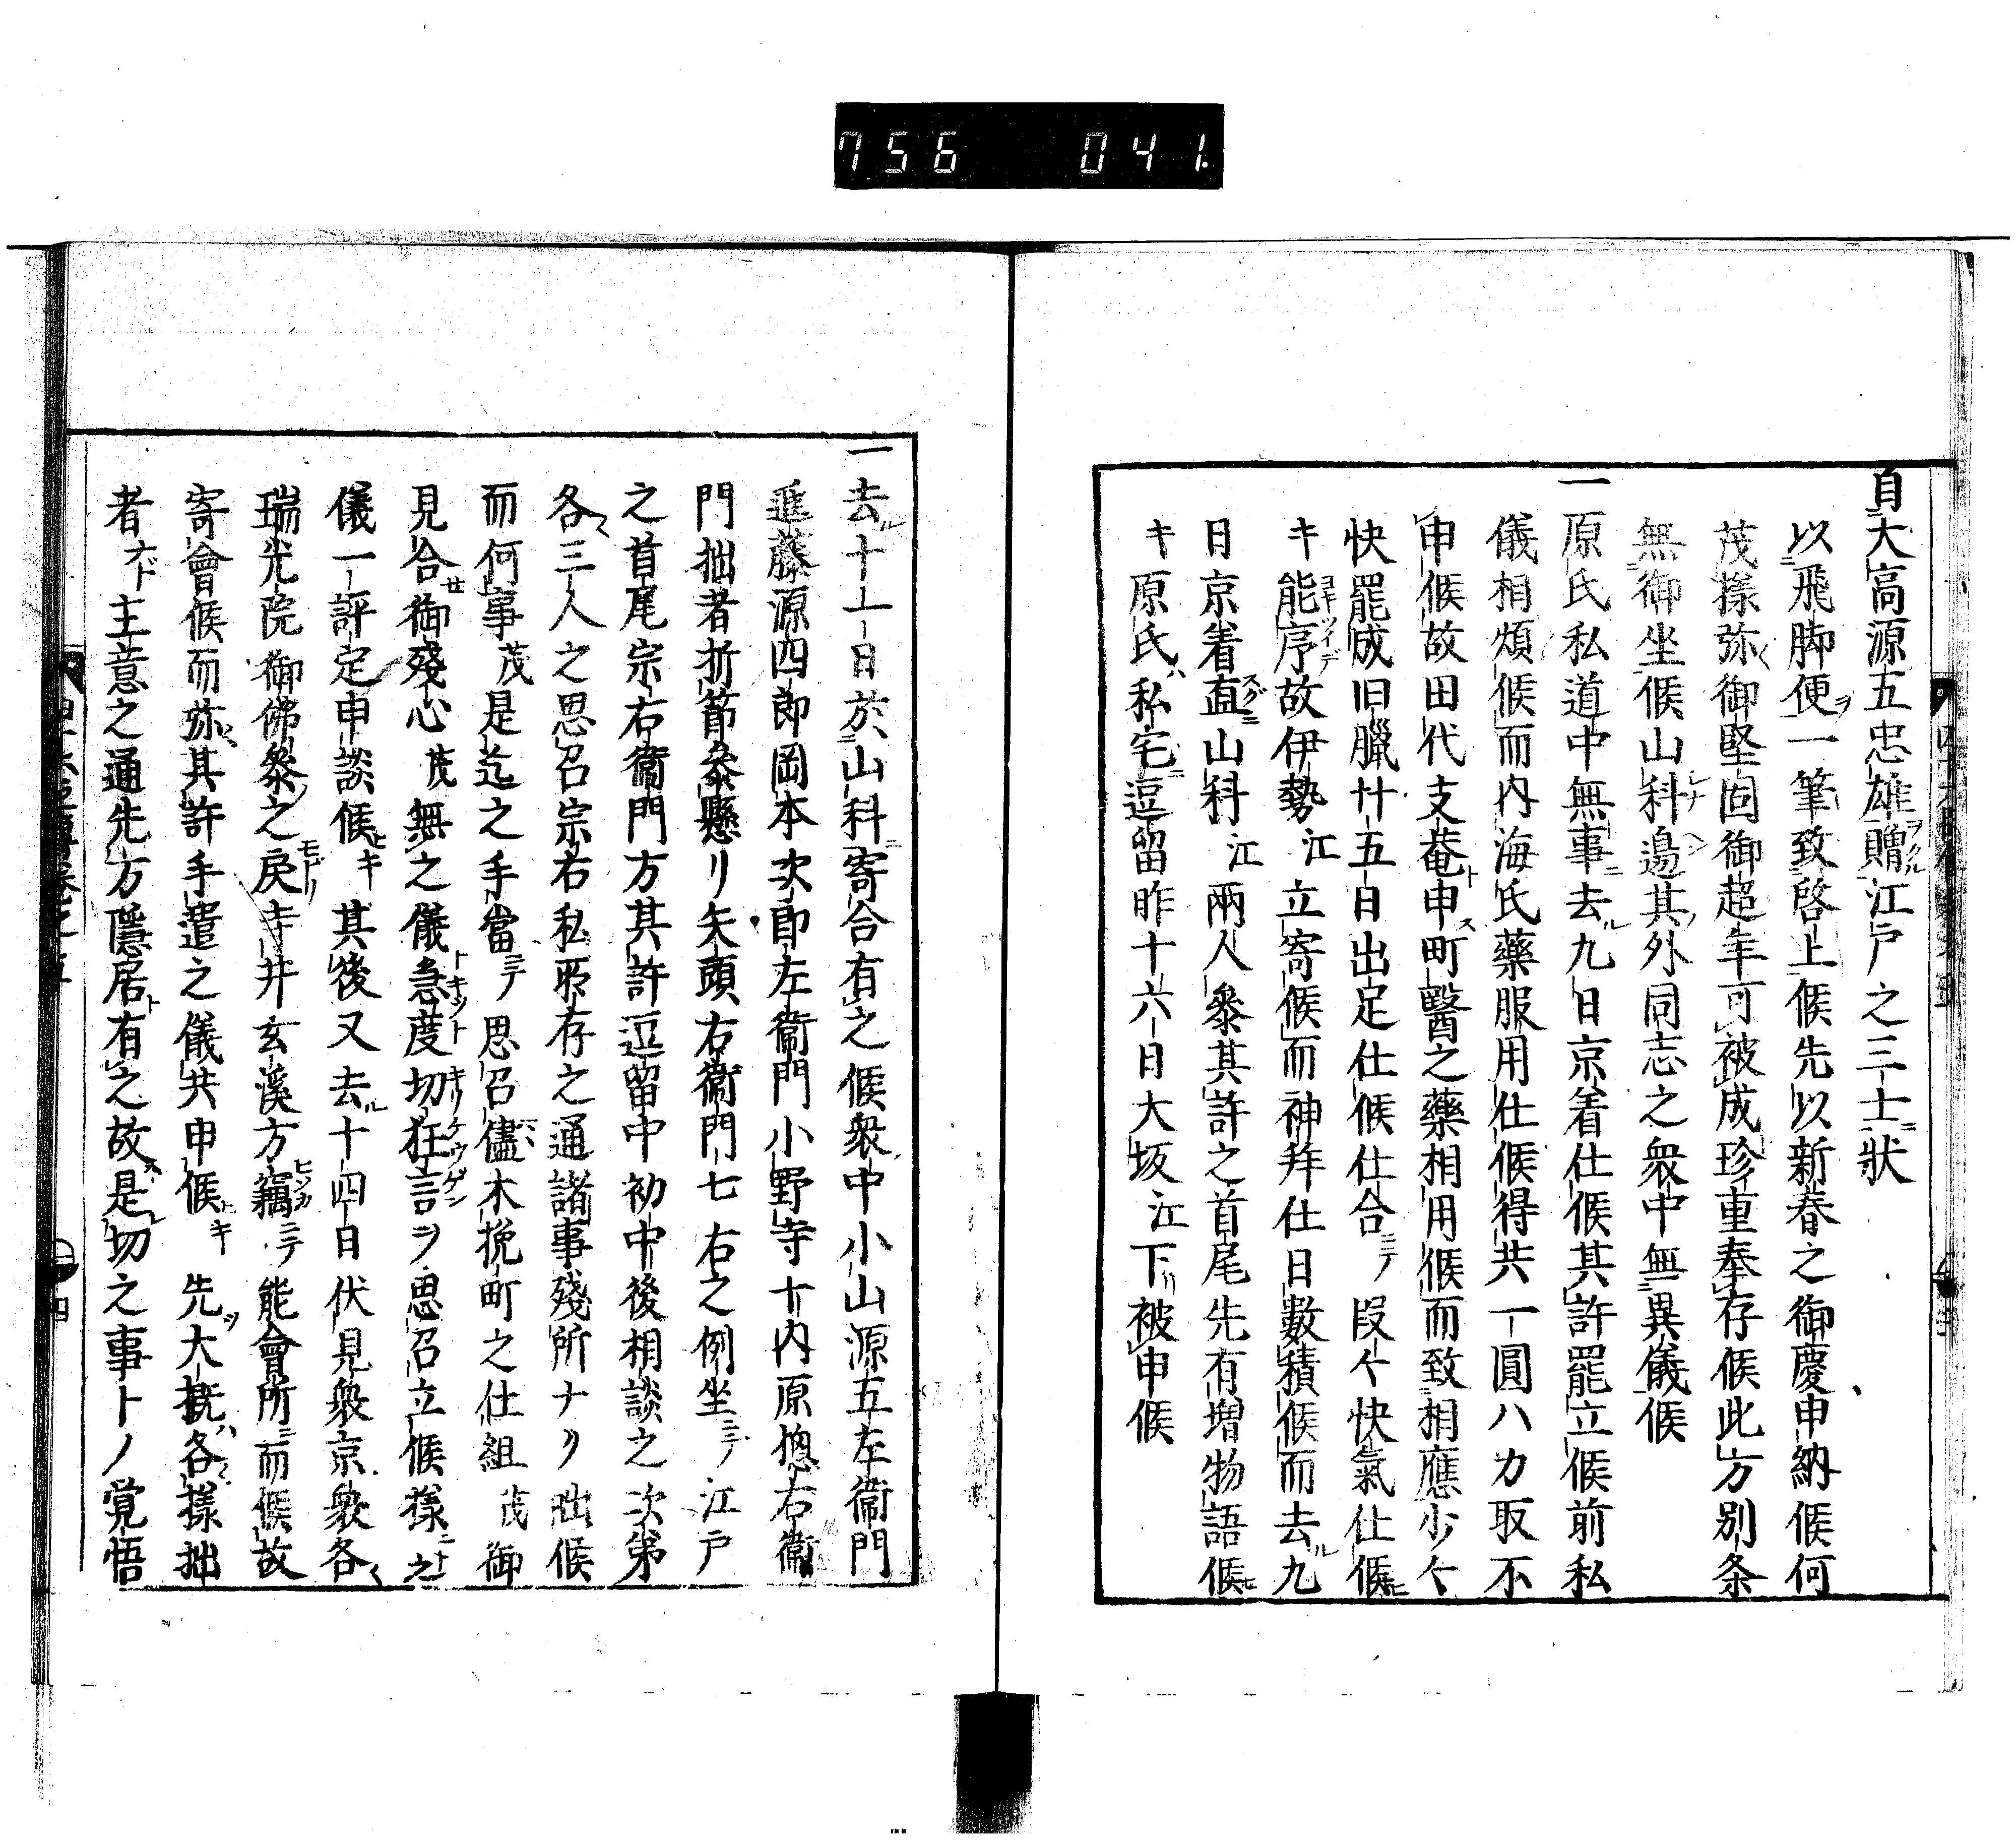 756 041.
自大高源五忠雄贈江戸之三士狀
以飛脚便一筆致啓上候先以新春之御慶申納候何
茂樣弥御堅固御超年可被成珍重奉存候此方別条
無御坐候山科邊其外同志之衆中無異儀候
一原氏私道中無事去九日京着仕候其許罷立候前私
儀相煩候而内海氏藥服用仕候得共一圓ハカ取不
申候故田代支菴申町醫之藥相用候而致相應少々
快罷成旧臘廿五日出足仕候仕合ニテ段々快氣仕候
キ能序故伊勢江立寄候而神拜仕日數積候而去九
日京着直山科江兩人參其許之首尾先有增物語候
キ原氏ハ私宅逗留昨十六日大坂江下リ被申候
一去十一日於山科寄合有之候衆中小山源五左衞門
進藤源四郎岡本次郎左衞門小野寺十内原惣右衞
門拙者折節參懸リ矢頭右衞門七右之例坐ニテ江戸
之首尾宗右衞門方其許逗留中初中後相談之次第
各三人之思召宗右私所存之通諸事殘所ナク出候
而何事茂是迄之手當ニテ思召儘木挽町之仕組茂御
見合セ御殘心茂無之儀急度切狂言ヲ思召立候樣之
儀一評定申談候キ其後又去十四日伏見衆京衆各
瑞光院御佛參之戾寺井玄溪方竊ニテ能會所而候故
寄會候而弥其許手遣之儀共申候キ先大概各樣拙
者ナド主意之通先方隱居有之故是切之事トノ覚悟
四